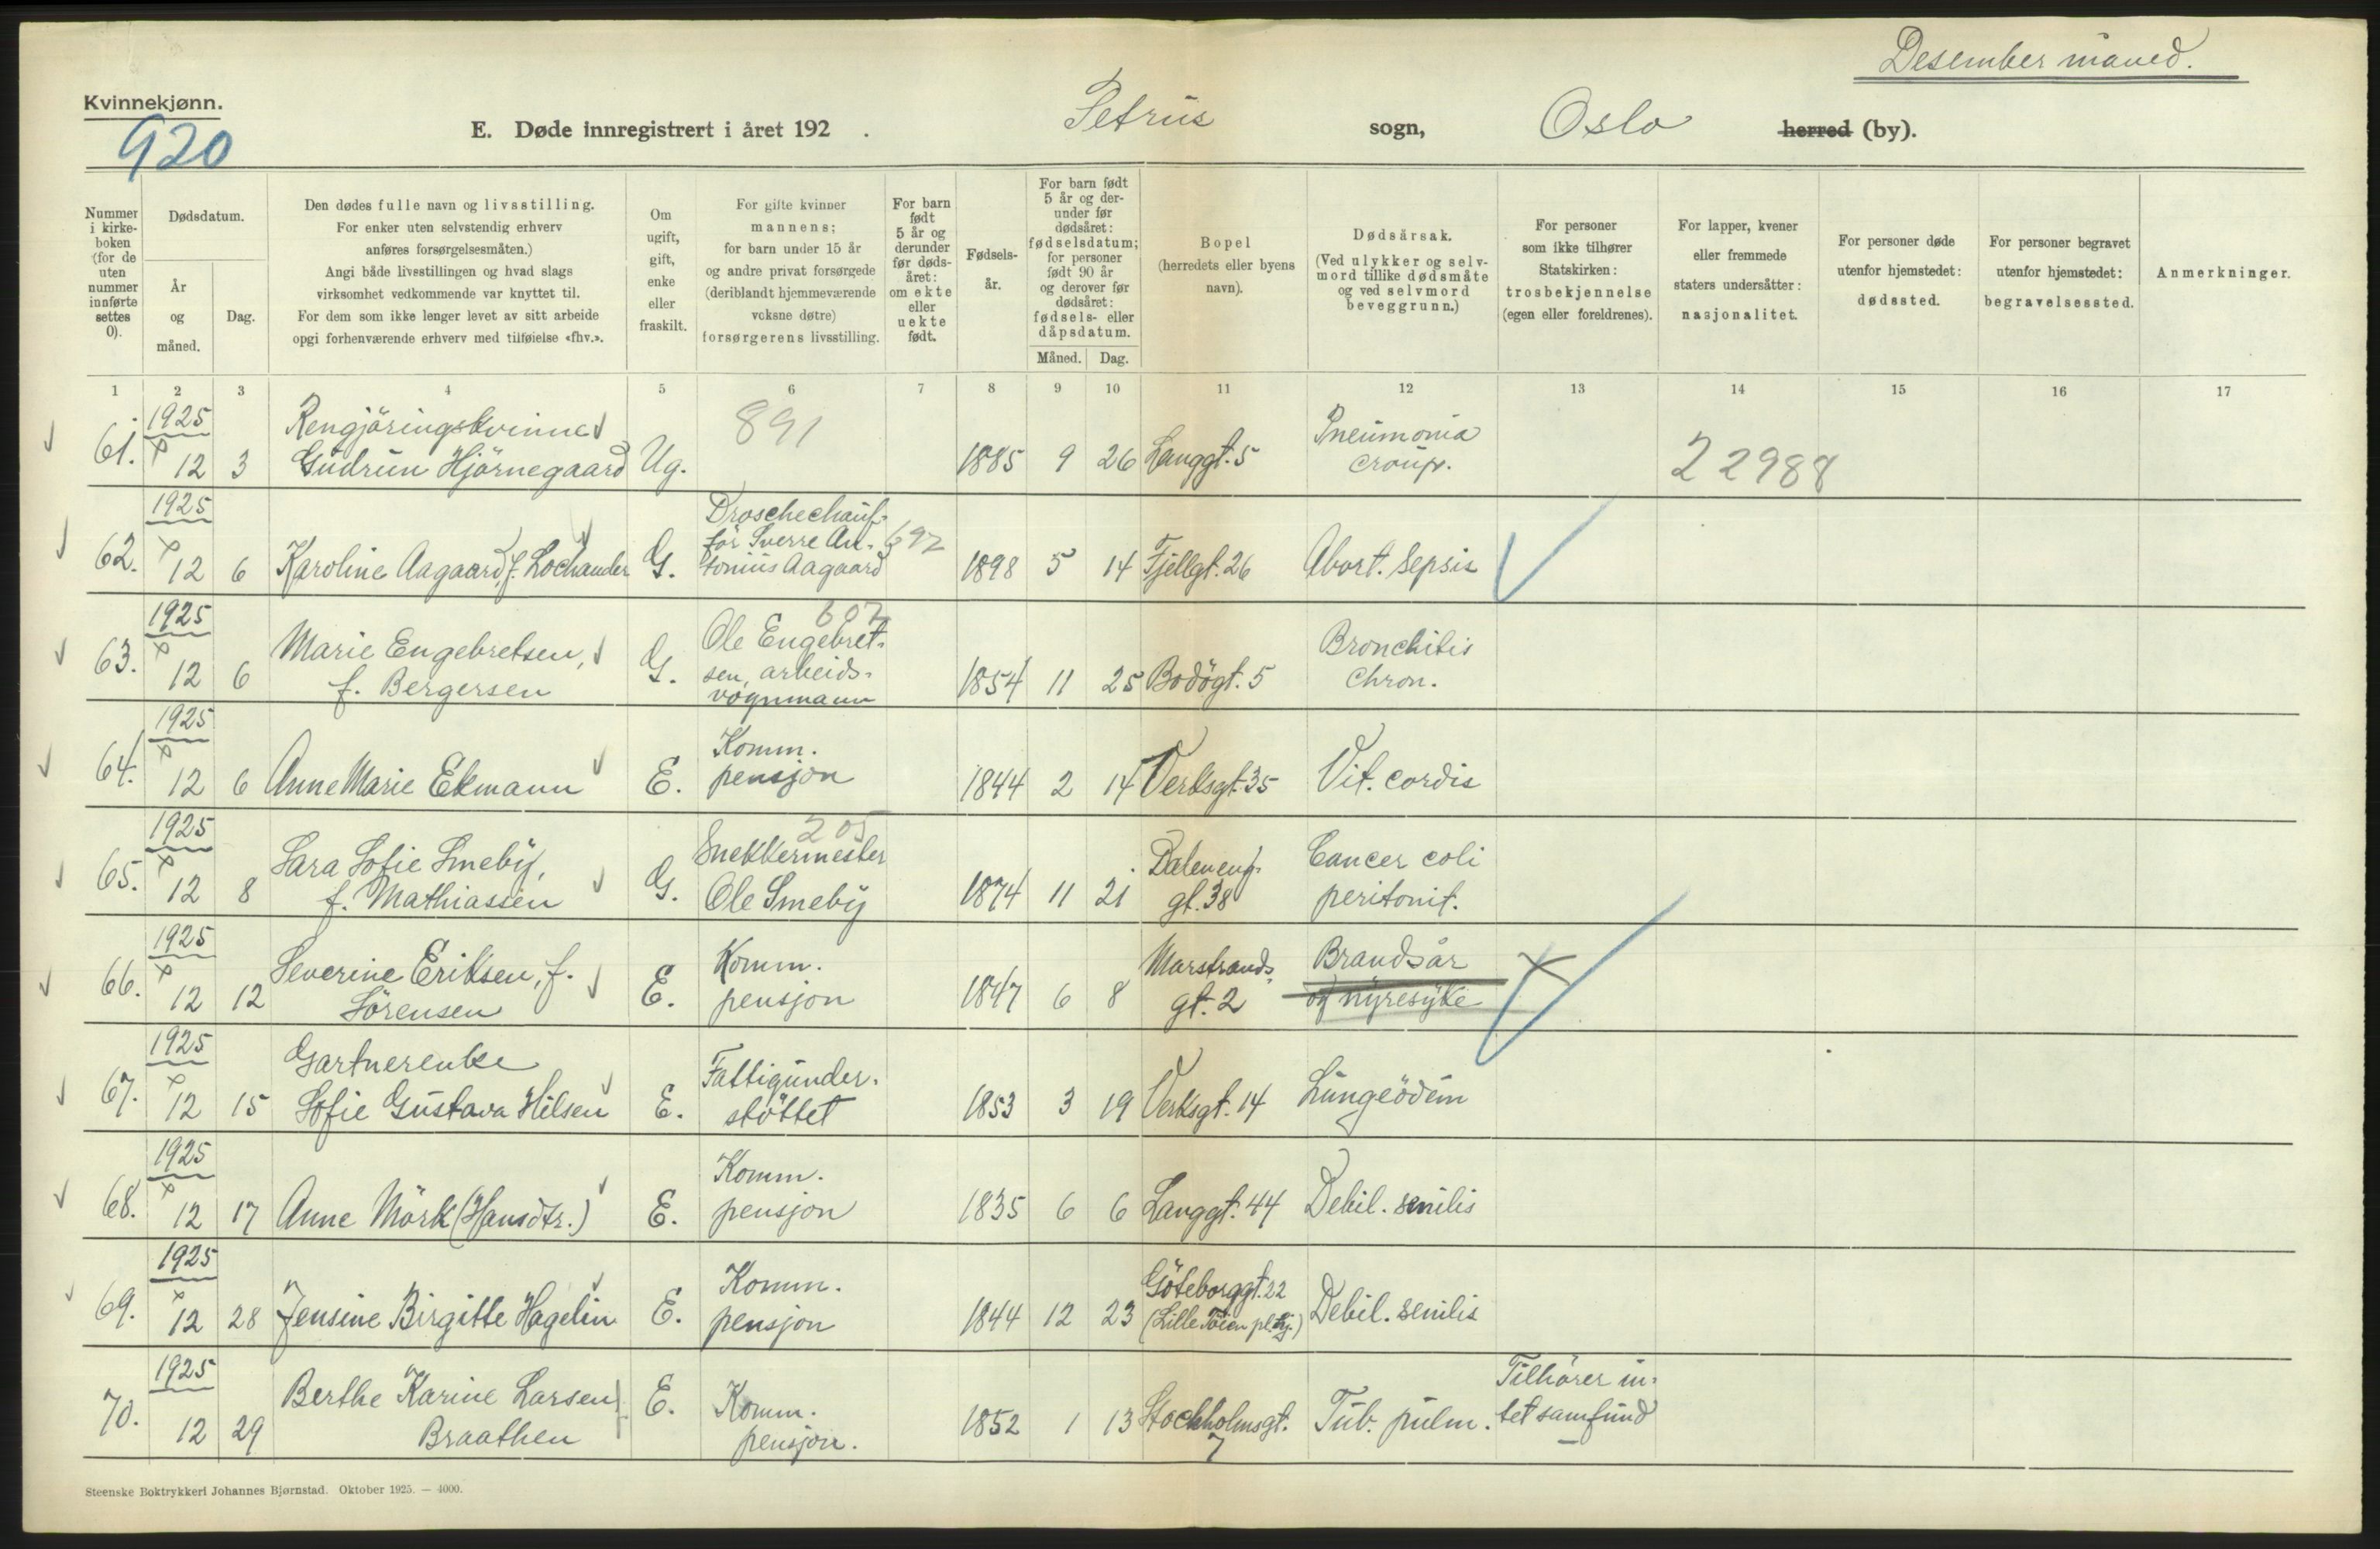 Desember måned.
Kvinnekjønn.
920
E. Døde innregistrert i året 192 .
Petrus sogn, Oslo herred (by).
Nummer i kirkeboken (for de uten nummer innførte settes 0).
Dødsdatum.
År og måned.
Dag.
Den dødes fulle navn og livsstilling.
For enker uten selvstendig erhverv
anføres forsørgelsesmåten.)
Angi både livsstillingen og hvad slags
virksomhet vedkommende var knyttet til.
For dem som ikke lenger levet av sitt arbeide
opgi forhenværende erhverv med tilføielse «fhv.».
Om ugift, gift, enke eller fraskilt.
For gifte kvinner
mannens;
for barn under 15 år
og andre privat forsørgede
(deriblandt hjemmeværende
voksne døtre)
forsørgerens livsstilling.
For barn født 5 år og derunder før dødsåret: om ekte eller uekte født.
Fødselsår.
For barn født 5 år og derunder før dødsåret: fødselsdatum; for personer født 90 år og derover før dødsåret: fødsels- eller dåpsdatum.
Måned. Dag.
Bopel
(herredets eller byens
navn).
Dødsårsak.
(Ved ulykker og selv-
mord tillike dødsmåte
og ved selvmord
beveggrunn.)
For personer
som ikke tilhører
Statskirken:
trosbekjennelse
(egen eller foreldrenes).
For lapper, kvener
eller fremmede
staters undersåtter:
nasjonalitet.
For personer døde
utenfor hjemstedet:
dødssted.
For personer begravet
utenfor hjemstedet:
begravelsessted.
Anmerkninger.
1 2 3 4 5 6 7 8 9 10 11 12 13 14 15 16 17
1925 Rengjöringskvinne 891 Pneumonia
61. 12 3 Gudrun Hjörnegaard Ug. 1885 9 26 Langgt. 5 croup. 22988
1925 Droschechauf-
för Sverre An- 692
62. 12 6 Karoline Aagaard, f. Lochander G. tonius Aagaard 1898 5 14 Fjellgt. 26 Abort. Sepsis
1925 602
Marie Engebretsen, Ole Engebret- Bronchitis
63. 12 6 f. Bergersen G. sen, arbeids- 1854 11 25 Bodögt. 5 Chron.
vognmann
1925 Komm.
64. 12 6 Anne Marie Ekmann E. pensjon 1844 2 14 Verksgt. 35 Vit. cordis
1925 205
Sara Sofie Smeby, Snekkermester Daleneng- Cancer coli
65. 12 8 f. Mathiassen G. Ole Smeby 1874 11 21 gt. 38 peritonit.
1925 Severine Eriksen, f. Komm. Marstrands- Brandsår
66. 12 12 Sörensen E. pensjon 1847 6 8 gt. 2 og nyresyke
1925 Gartnerenke Fattigunder-
67. 12 15 Sofie Gustava Hilsen E. støttet 1853 3 19 Verksgt. 14 Lungeödem
1925 Komm.
68. 12 17 Anne Mörk (Hansdtr.) E. pensjon 1835 6 6 Langgt. 44 Debil. senilis
1925 Komm. Göteborggt. 22
69. 12 28 Jensine Birgitte Hagelin E. pensjon 1844 12 23 (Lille Töien pl.hj.) Debil. senilis
1925 Berthe Karine Larsen E. Komm. Tilhörer in-
70. 12 29 Braathen pensjon. 1852 1 13 Stockholmsgt. 7 Tub. pulm. tet samfund
Steenske Boktrykkeri Johannes Bjørnstad. Oktober 1925. — 4000.